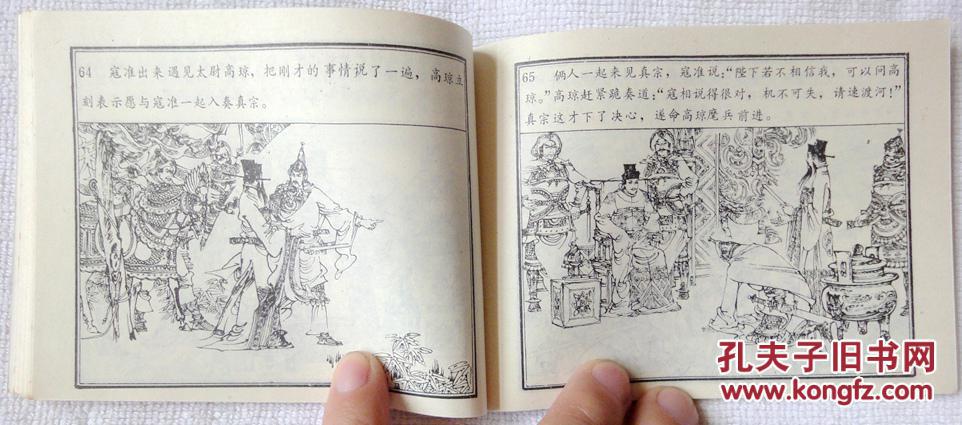 64 寇准出来遇见太尉高琼，把刚才的事情说了一遍，高琼立
刻表示愿与寇准一起入奏真宗。
65 俩人一起来见真宗，寇准说：“陛下若不相信我，可以问高
琼。”高琼赶紧跪奏道：“寇相说得很对，机不可失，请速渡河！”
真宗这才下了决心，遂命高琼麾兵前进。
孔夫子旧书网
www.kongfz.com